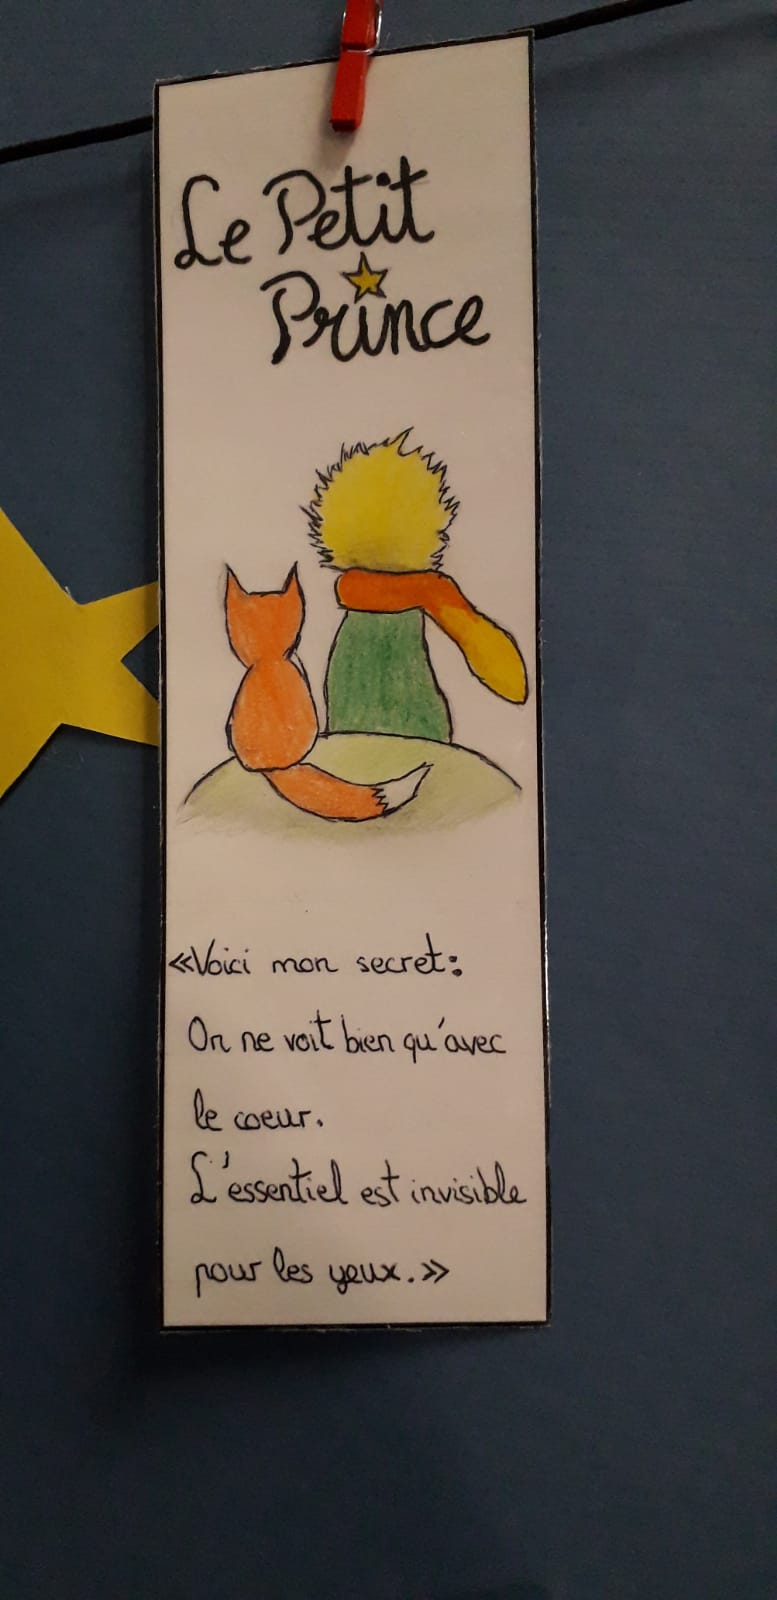 Le Petit
Prince
«Voici mon secret:
On ne voit bien qu'avec
le coeur.
L'essentiel est invisible
pour les yeux.»